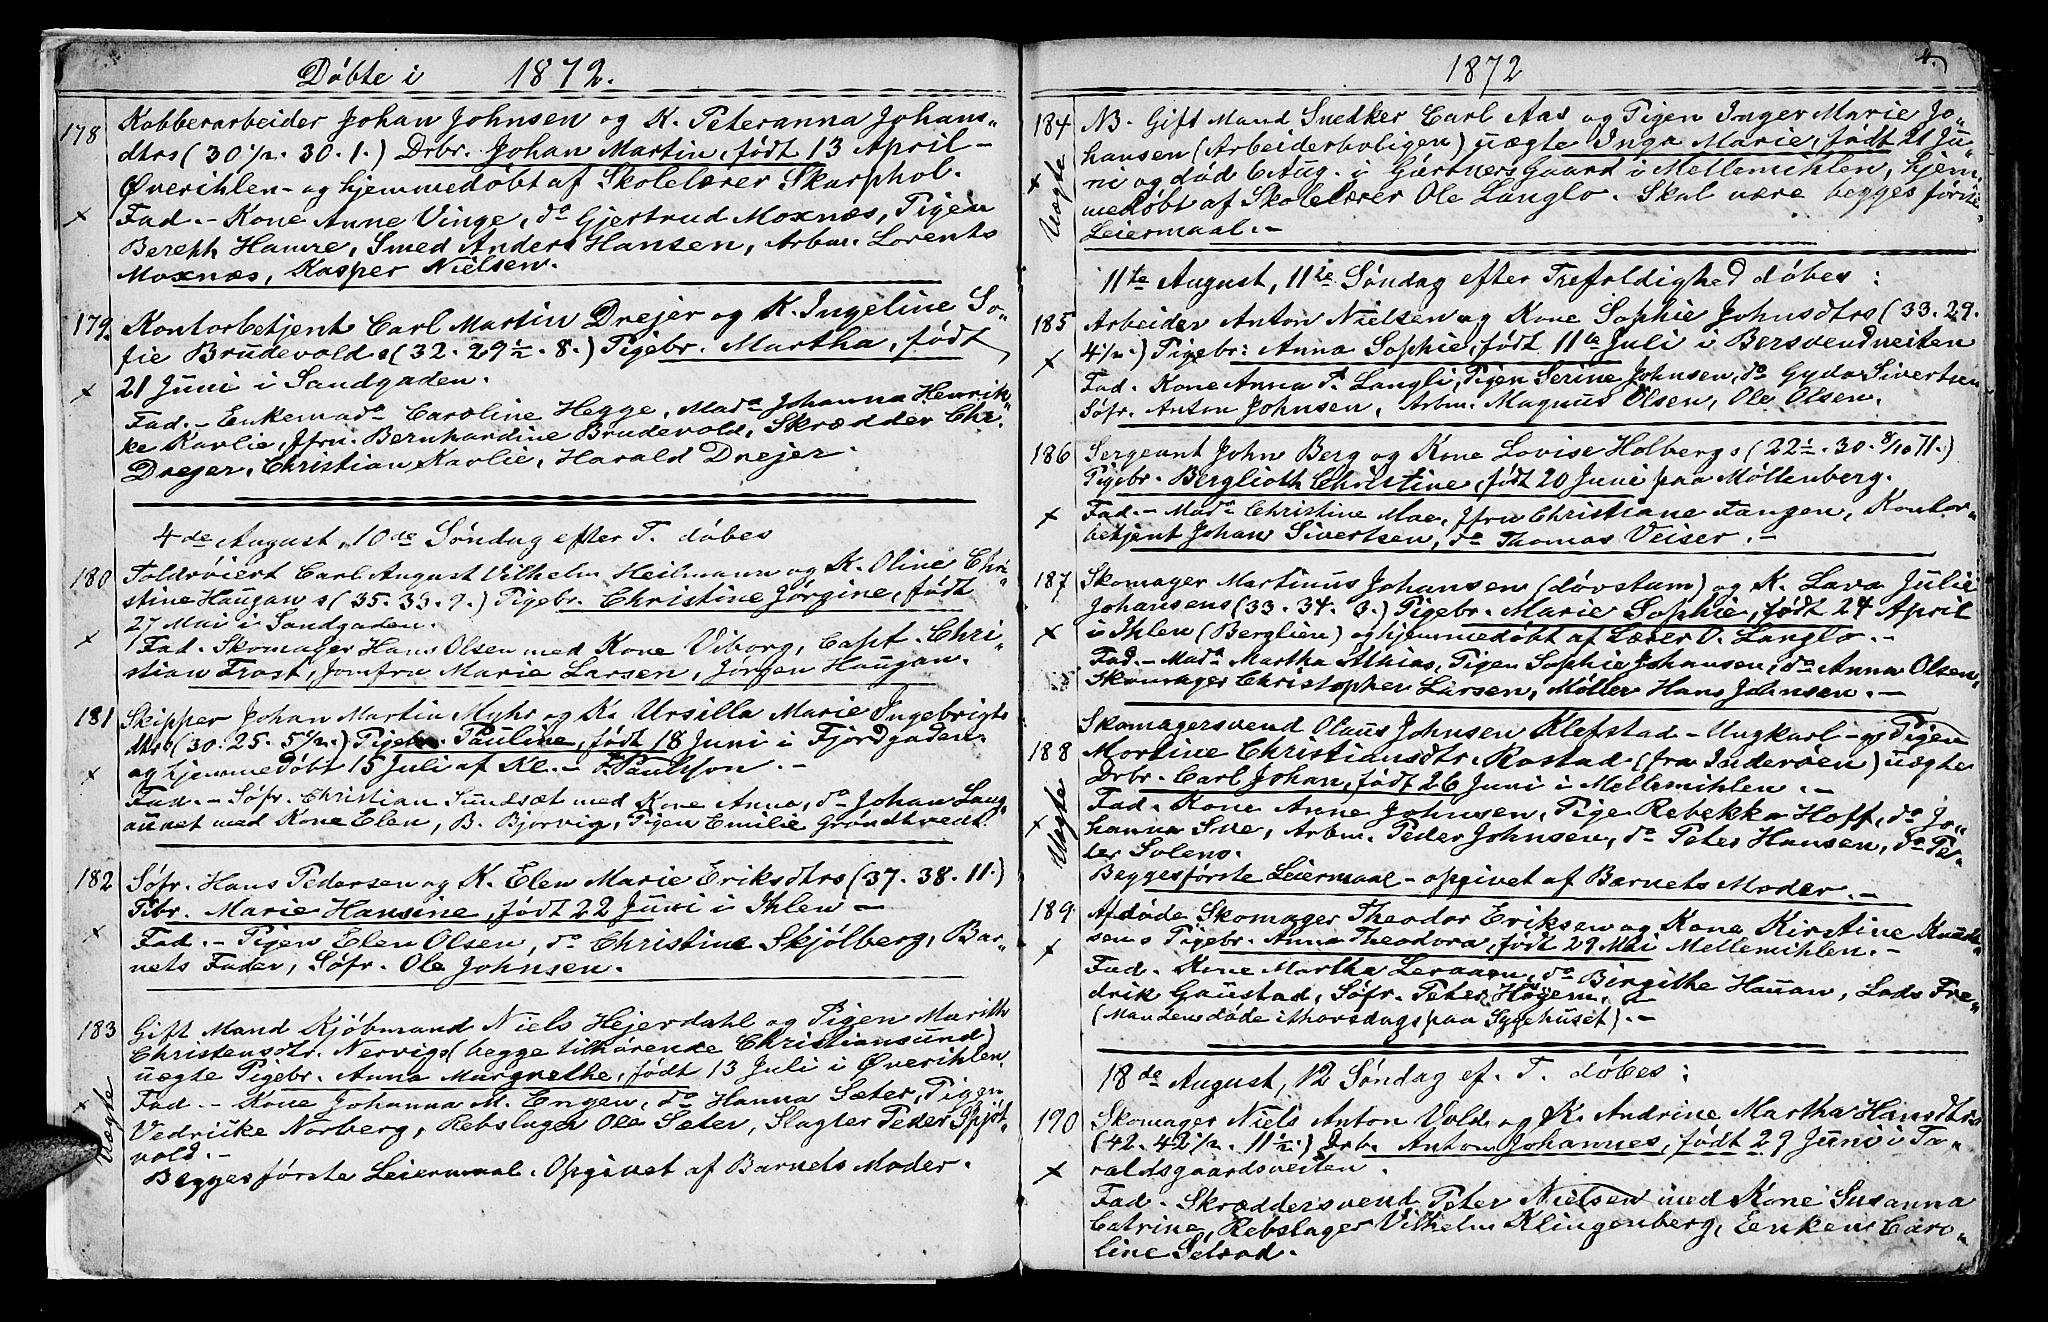 Döbte i 1872.
178 Kobberarbeider Johan Johnsen og K. Peteranna Johans„
dtrs (30 1/2. 30. 1.) Drbr. Johan Martin, födt 13 April –
Överihlen – og hjemmedöbt af Skolelærer Skarphol.
x Fad. – Kone Anne Vinge, do Gjertrud Moxnæs, Pigen
Bereth Hamre, Smed Anders Hansen, Arbm. Lorents
Moxnæs, Kasper Nielsen.
179. Kontorbetjent Carl Martin Drejer og K. Ingeline So„
fie Brudevolds (32. 29 1/2. 8.) Pigebr. Martha, födt
x 21 Juni i Sandgaden.
Fad. – Enkemada Caroline Hegge, Mada Johanna Henrik„
ke Karlie, Jfru. Bernhardine Brudevold, Skrædder Chr.
Drejer, Christian Karlie, Harald Drejer.
4de August, 10de Söndag efter T. döbes
180 Toldröiert Carl August Vilhelm Heilmann og K. Oline Chri„
stine Haugans (35. 33. 9.) Pigebr. Christine Jörgine, födt
27 Mai i Sandgaden.
x Fad. Skomager Hans Olsen med Kone Viborg, Capt. Chri„
stian Frost, Jomfru Marie Larsen, Jörgen Haugan.
181 Skipper Johan Martin Myhr og K. Ursilla Marie Ingebrigts
dtrs (30. 25. 5 1/2.) Pigebr. Pauline, födt 18 Juni i Fjordgaden
x og hjemmedöbt 15 Juli af Kl. – F. Paulsson. –
Fad. – Söfr. Christian Sundsæt med Kone Anna, do Johan Laug„
aunet med Kone Elen, B. Bjorvig, Pigen Emilie Gröndtvedt.
182 Söfr. Hans Pedersen og K. Elen Marie Eriksdtrs (37. 38. 11.)
Pibr. Marie Hansine, födt 22 Juni i Ihlen –
x Fad. – Pigen Elen Olsen, do Christine Skjölberg, Bar„
nets Fader, Söfr. Ole Johnsen.
183 Gift Mand Kjöbmand Niels Hejerdahl og Pigen Marith
Christensdtr. Nervigs (begge tilhörende Christiansund)
uægte Pigebr. Anna Margrethe, födt 13 Juli i Överihlen.
x Uægte Fad. – Kone Johanna M. Engen, do Hanna Sæter, Pigen
Vedrikke Norberg, Rebslager Ole Sæter, Slagter Peder Spjöt„
vold. –
Begges förste Leiermaal. Opgivet af Barnets Moder.
1872
4.
184 NB. Gift Mand Snedker Carl Aas og Pigen Inger Marie Jo„
hansen (Arbeiderboligen) uægte Inga Marie, födt 21 Ju„
x Uægte ni og död 6 Aug. i Gartners Gaard i Mellemihlen, hjem„
medöbt af Skolelærer Ole Langlo. Skal være begges förste
Leiermaal. –
11te August, 11te Söndag efter Trefoldighed döbes:
185 Arbeider Anton Nielsen og Kone Sophie Johnsdtrs (33. 29.
4 1/2.) Pigebr: Anna Sophie, födt 11te Juli i Bersvendveiten
x Fad. Kone Anna P. Langli, Pigen Serine Johnsen, do Gyda Sivertsen
Söfr. Anton Johnsen, Arbm. Magnus Olsen, Ole Olsen.
186 Sergeant John Berg og Kone Lovise Holbergs (22 1/2. 30. 8/10 71.)
Pigebr. Berglioth Christine, födt 20 Juni paa Möllenberg.
x Fad. – Mada Christine Moe, Jfru Christiane Tangen, Kontor„
betjent Johan Sivertsen, do Thomas Veiser. –
187 Skomager Martinus Johansen (dövstum) og K. Lava Julie
Johansens (33. 34. 3.) Pigebr. Marie Sophie, födt 24 April
x i Ihlen (Berglien) og hjemmedöbt af Lærer O. Langlo. –
Fad. – Mada Martha Mathias, Pigen Sophie Johansen, do Anna Olsen,
Skomager Christopher Larsen, Möller Hans Johnsen. –
Skomagersvend Olaus Johnsen Klefstad – Ungkarl – og Pigen
188 Mortine Christiansdtr. Rostad (fra Inderöen) uægte
Drbr. Carl Johan, födt 26 Juni i Mellemihlen. –
x Uægte Fad. Kone Anne Johnsen, Pige Rebekka Hoff, do Jo„
hanna Sve, Arbm. Peder Johnsen, do Peter Hansen, do Pe„
ter Solens.
Begges förste Leiermaal – opgivet af Barnets Moder. –
189 Afdöde Skomager Theodor Eriksen og Kone Kirstine Knud„
sens Pigebr. Anna Theodora, födt 29 Mai Mellemihlen. –
x Fad. Kone Martha Leraaen, do Birgithe Hauan, Lods Fre„
drik Gaustad, Söfr. Peter Högem.
(Manden döde ithorsdags paa Sygehuset). –
18de August, 12 Söndag ef. T. döbes:
190 Skomager Niels Anton Vold og K. Andrine Martha Hansdtrs
(42. 42 1/2. 11 1/2.) Drb. Anton Johannes, födt 29 Juni i Ta„
x raldsgaardsveiten.
Fad. Skræddersvend Peter Nielsen med Kone Susanna
Catrine, Rebslager Vilhelm Klingenberg, Eenken Caro„
line Selrod.